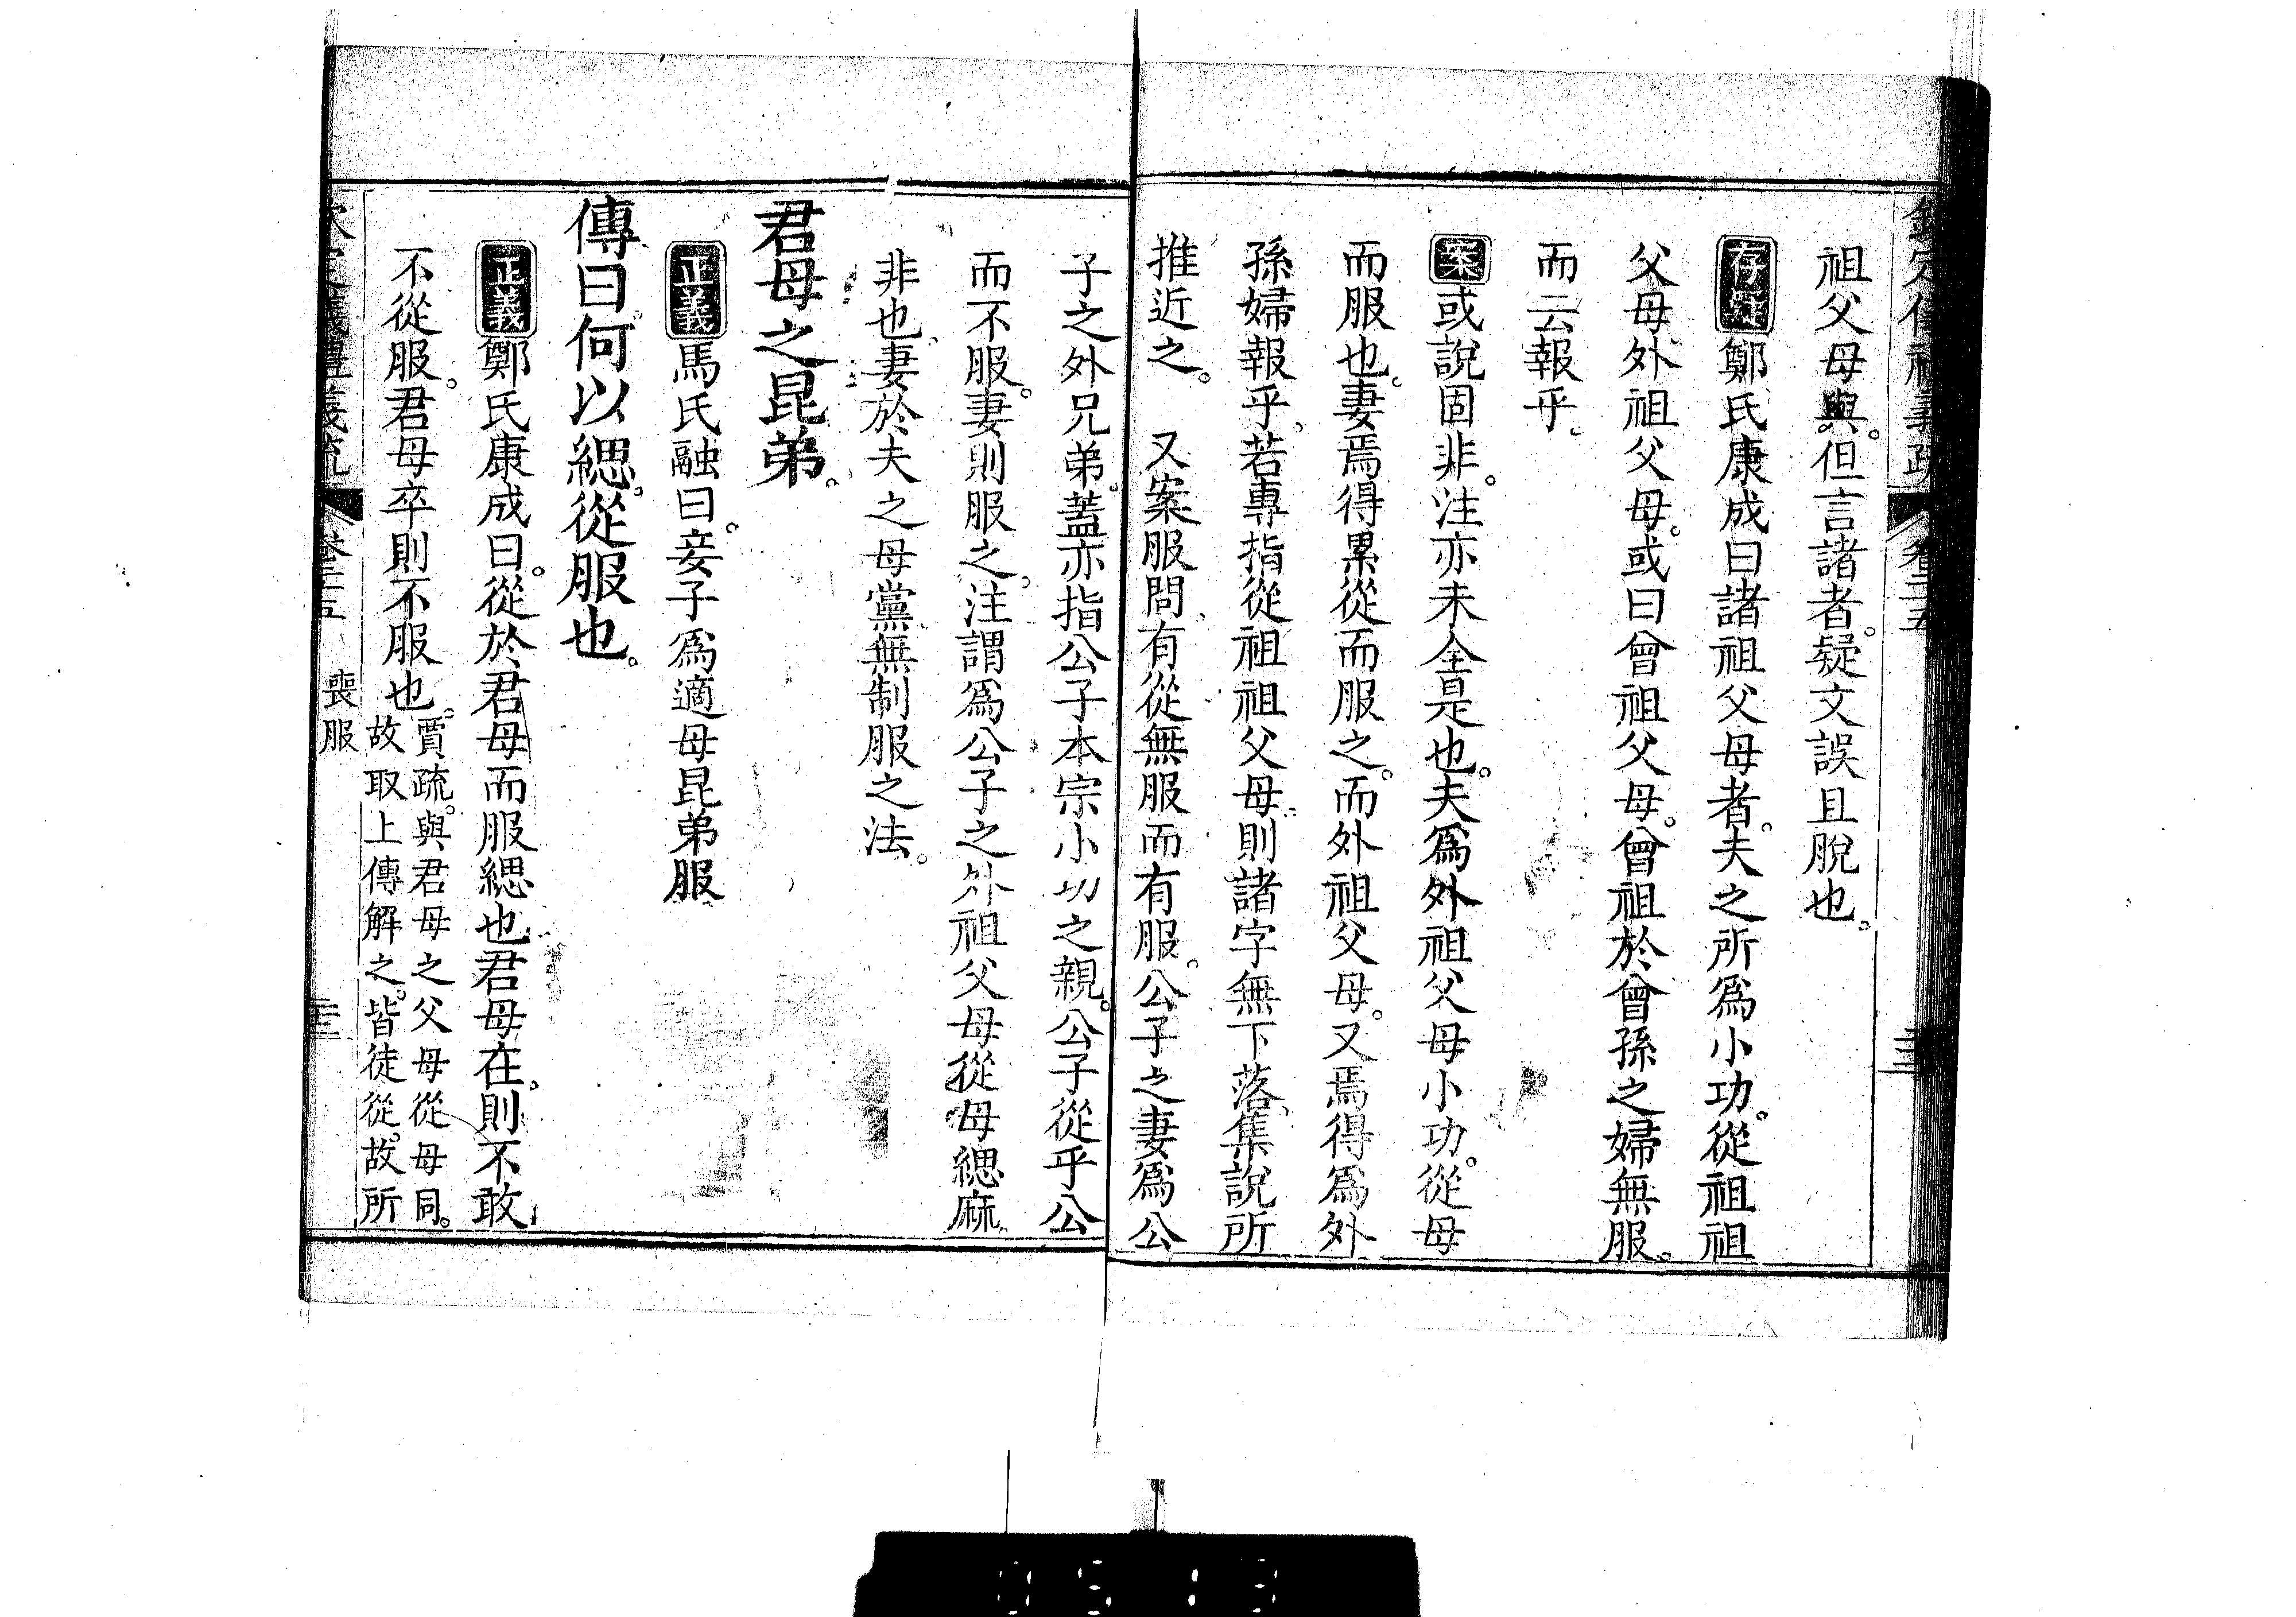 欽定儀禮義疏 卷二十五
祖父母與。但言諸者。疑文誤且脫也。
存疑 鄭氏康成曰諸祖父母者。夫之所爲小功。從祖祖
父母、外祖父母。或曰曾祖父母。曾祖於曾孫之婦無服。
而云報乎。
案 或說固非。注亦未全是也。夫爲外祖父母小功。從母
而服也。妻焉得累從而服之。而外祖父母。又焉得爲外
孫婦報乎、若專指從祖祖父母、則諸字無下落、集說所
推近之。 又案服問、有從無服而有服。公子之妻爲公
子之外兄弟。蓋亦指公子本宗小功之親。公子從乎公
而不服。妻則服之。注謂爲公子之外祖父母從母緦麻。
非也、妻於夫之母黨、無制服之法。
君母之昆弟。
正義 馬氏融曰。妾子爲適母昆弟服
傳曰。何以緦。從服也。
正義 鄭氏康成曰。從於君母而服緦也君母在、則不敢
不從服。君母卒則不服也。賈疏。與君母之父母從母同。
故取上傳解之。皆徒從。故所
喪服